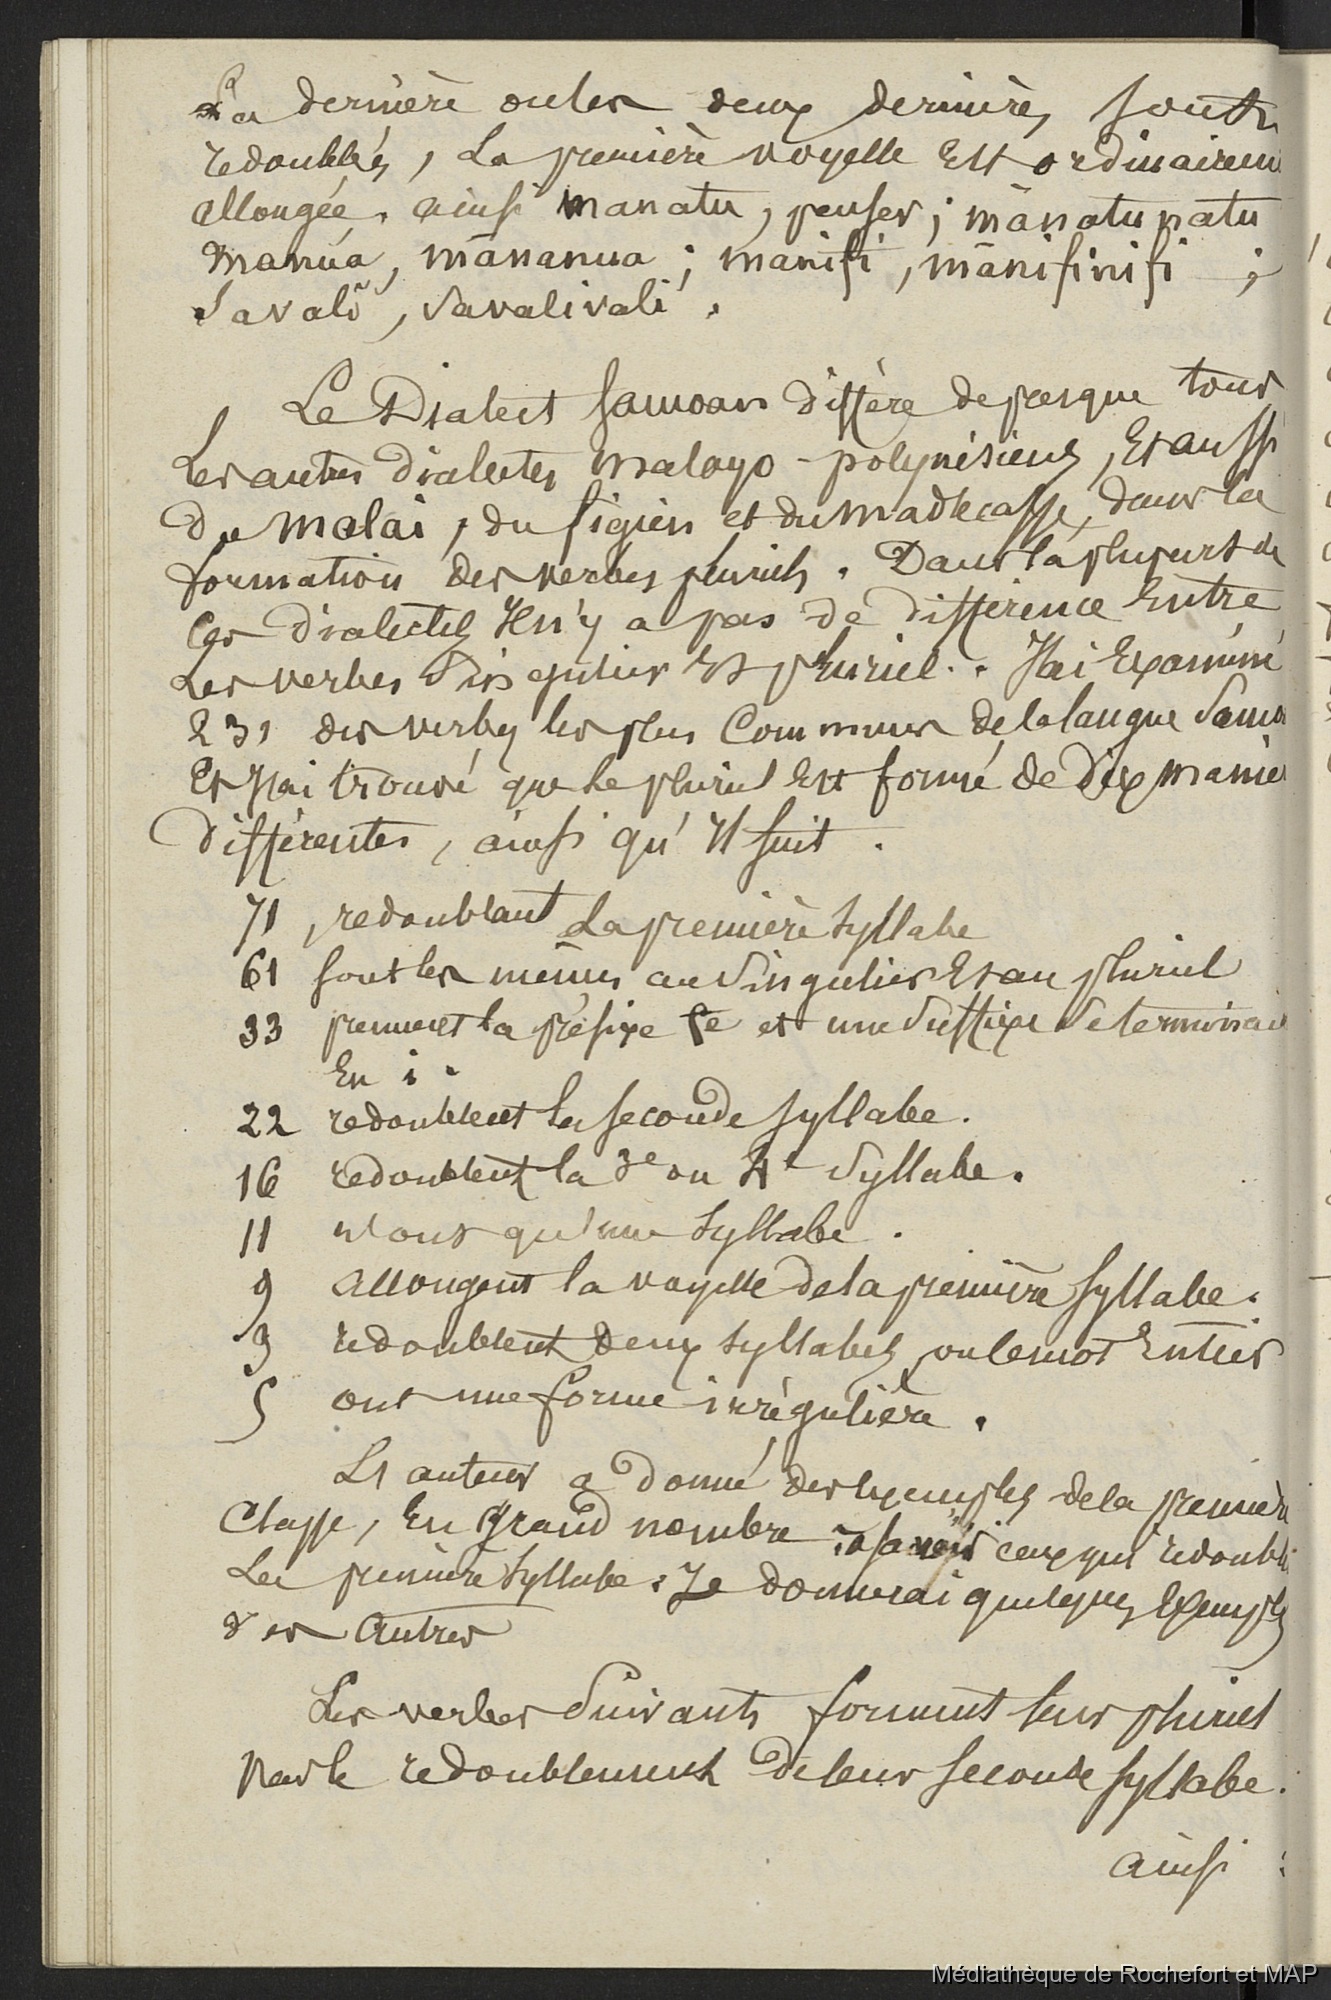 La dernière ou les deux dernières sont
redoublés, la première voyelle Est ordinairem
allongée. ainsi manatu, penser; mānatunatu
manúa, mānanua; manifi, mānifinifi ;
Savali, Savalivali.
Le Dialect Samoan diffère de presque tous
Les autres dialectes malayo-polynésiens, Et aussi
Du Malai, du figien et du Madecasse, dans la
formation des verbes pluriels. Dans la plupart de
Ces dialectes Il n'y a pas de différence Entre
Les verbes Singulier Et pluriel. J'ai Examiné
231 des verbes les plus Communs de la langue Samo
Et J'ai trouvé que le pluriel Est formé de Dix maniè
différentes, ainsi qu'Il suit.
71 , redoublant La première Syllabe
61 sont les mêmes au Singulier Et au pluriel
33 prennent la préfixe fe et une Suffixe Se terminan
En i.
22 redoublent la seconde syllabe.
16 redoublent la 3e ou 4e Syllabe.
11 n'ont qu'une Syllabe.
9 allongent la voyelle de la première Syllabe.
9 redoublent deux Syllabes, ou le mot Entier
5 ont une forme irrégulière.
L'auteur a donné des Exemples de la premièr
Classe, En grand nombre à savoir ceux qui redoubl
La première Syllabe. Je donnerai quelques Exemples
des Autres
Les verbes Suivants forment leur pluriel
Par le redoublement de leur seconde Syllabe.
ainsi :
Médiathèque de Rochefort et MAP